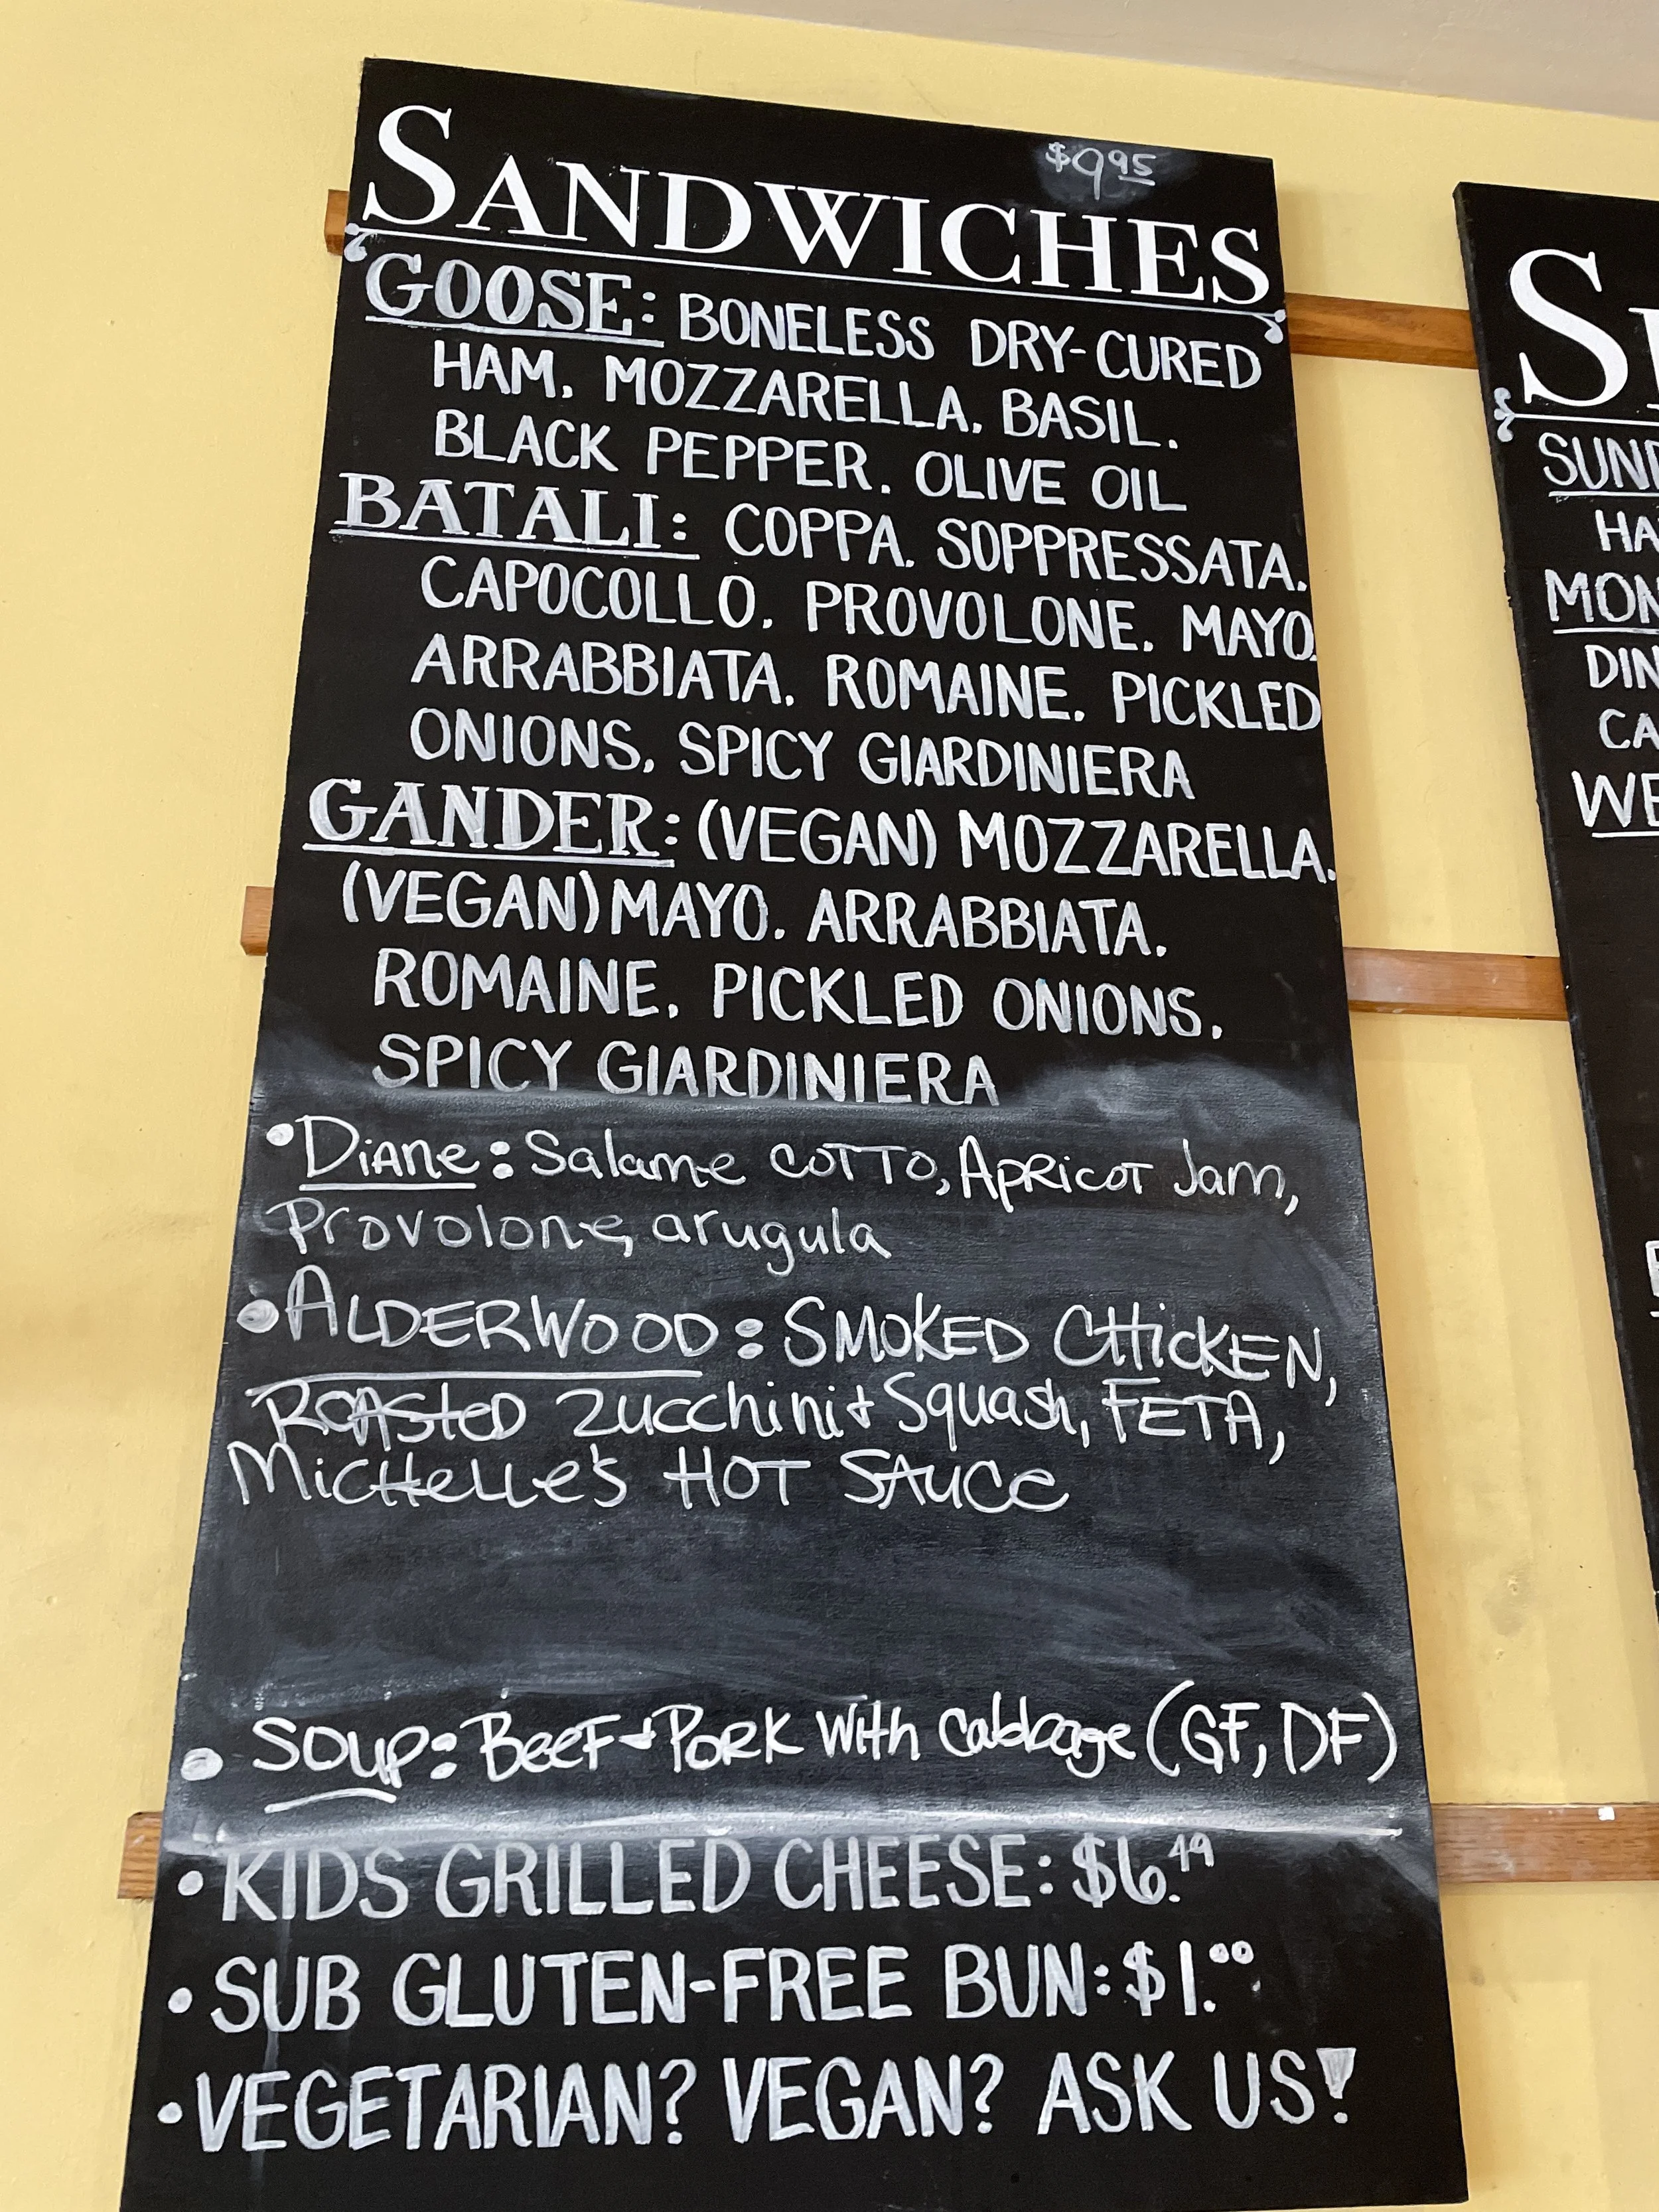 $9.95
SANDWICHES
GOOSE: BONELESS DRY-CURED
HAM, MOZZARELLA, BASIL,
BLACK PEPPER, OLIVE OIL
BATALI: COPPA, SOPPRESSATA,
CAPOCOLLO, PROVOLONE, MAYO,
ARRABBIATA, ROMAINE, PICKLED
ONIONS, SPICY GIARDINIERA
GANDER: (VEGAN) MOZZARELLA,
(VEGAN) MAYO, ARRABBIATA,
ROMAINE, PICKLED ONIONS,
SPICY GIARDINIERA
•Diane: Salame cotto, Apricot Jam,
Provolone, arugula
•ALDERWOOD: SMOKED CHicKEN,
Roasted Zucchini + Squash, FETA,
Michelle's HOT SAUCe
• SOUP: Beef + Pork with cabbage (GF, DF)
• KIDS GRILLED CHEESE: $6.49
• SUB GLUTEN-FREE BUN: $1.00
• VEGETARIAN? VEGAN? ASK US!
SUN
HA
MON
DIN
CA
WE